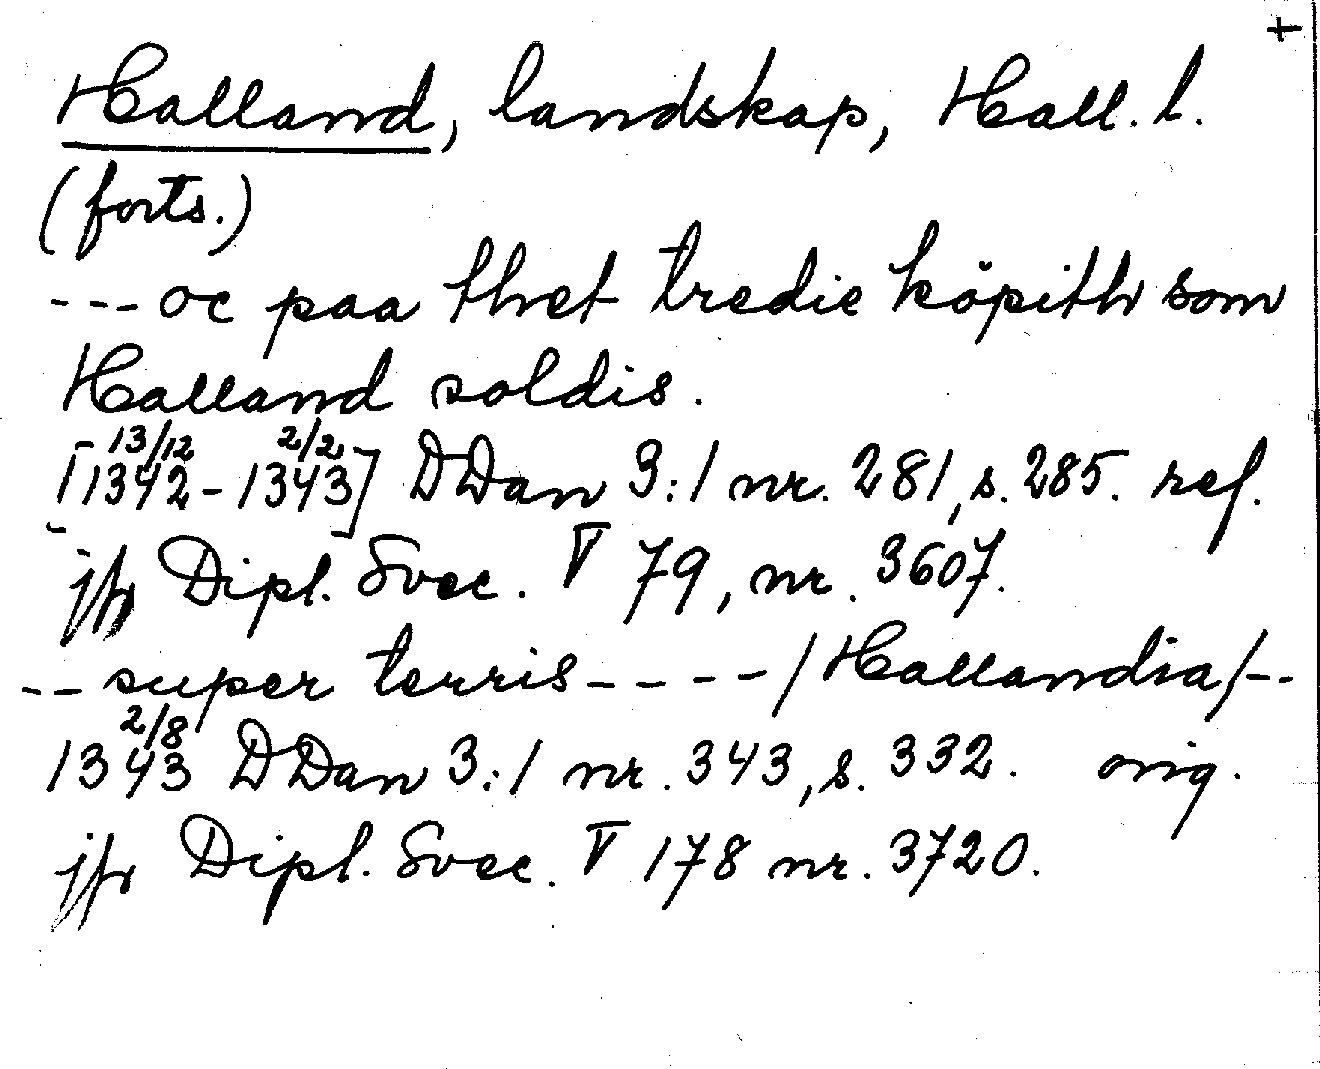 +
Halland, landskap, Hall. l.
(forts.)
--- oc paa thet tredie köpith som
Halland soldis.
[13/12 1342 - 2/2 1343] DDan 3:1 nr. 281, s. 285. ref.
jfr Dipl. Svec. V 79, nr. 3607.
-- super terris ---- /Hallandia/--
2/8 1343 DDan 3:1 nr. 343, s. 332. orig.
jfr Dipl. Svec. V 178 nr. 3720.